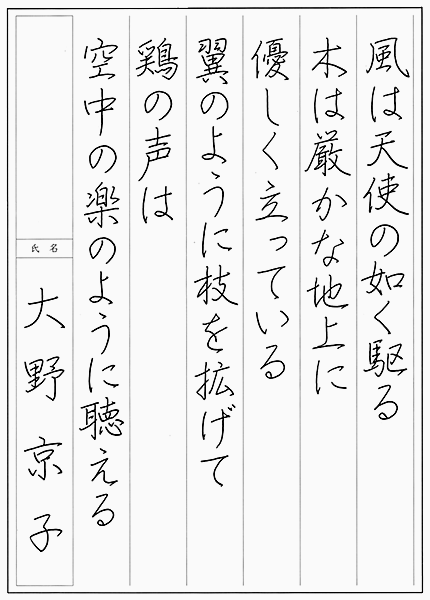 風は天使の如く駆る
木は厳かな地上に
優しく立っている
翼のように枝を拡げて
鶏の声は
空中の楽のように聴える
氏名
大野京子